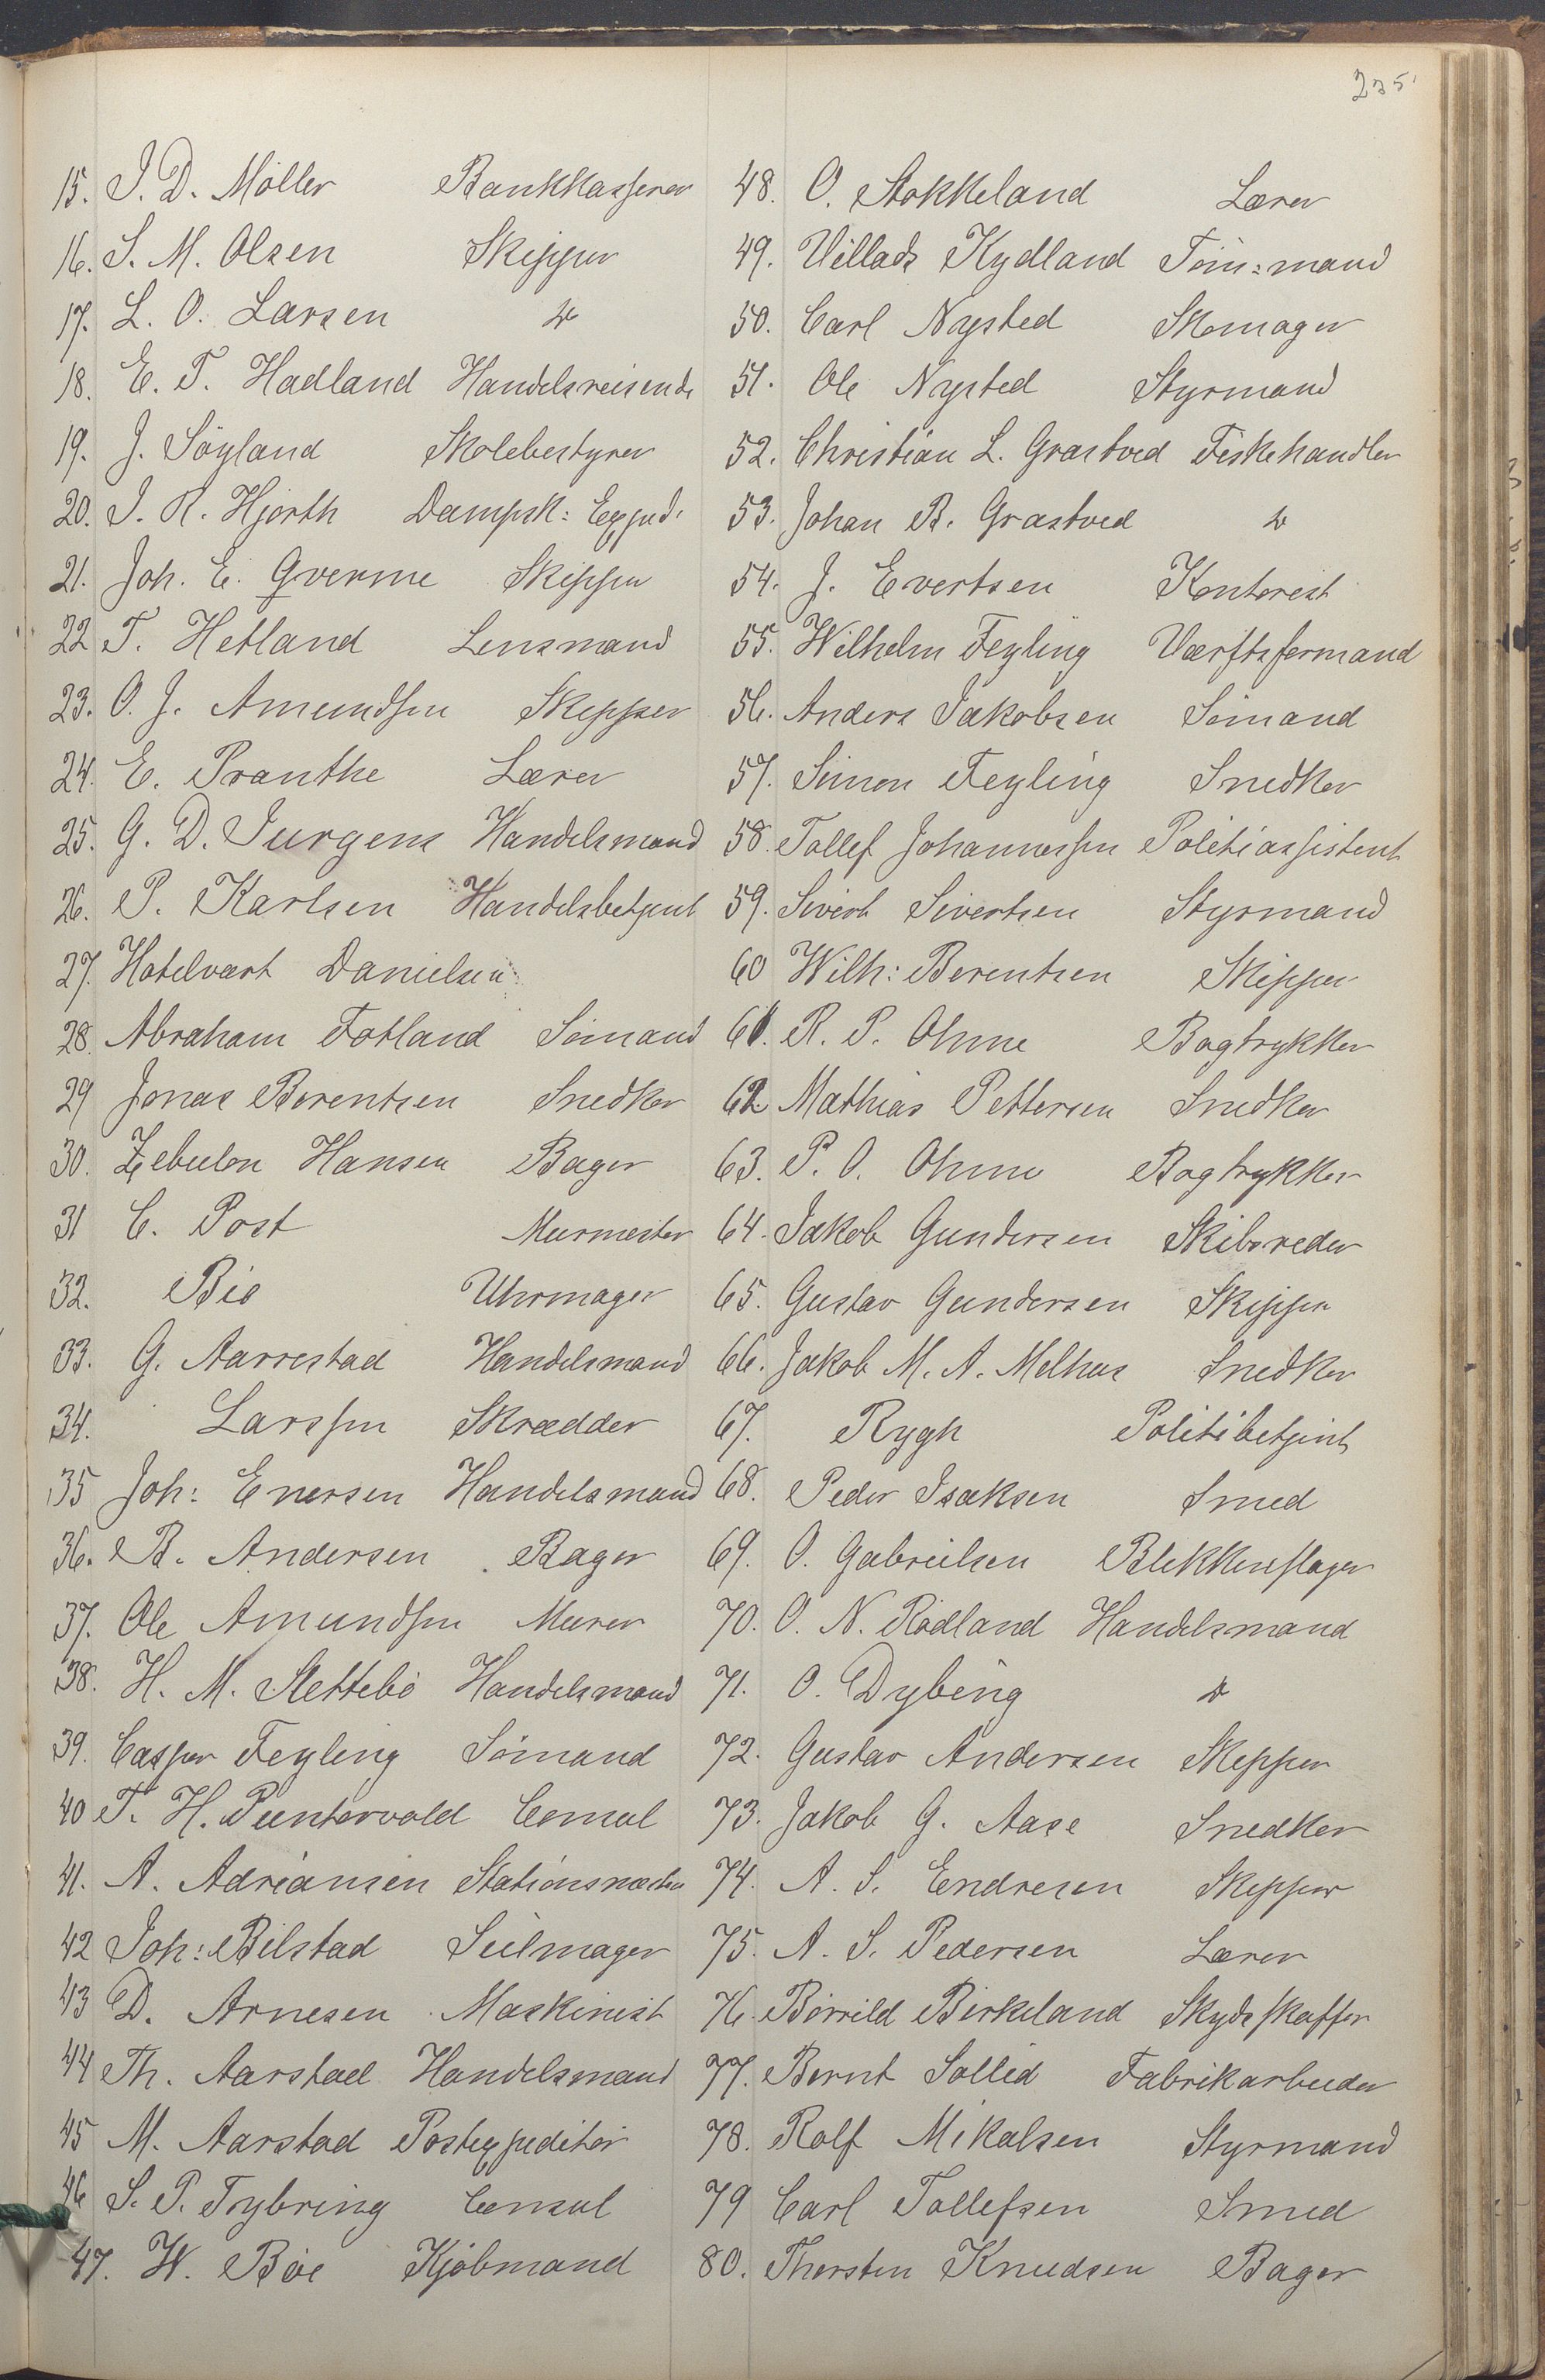 235
15. J. D. Möller Bankkasserer
16. S. M. Olsen Skipper
17. L. O. Larsen do
18. E. T. Hadland Handelsreisende
19. J. Söyland Skolebestyrer
20. I. R. Hjorth Dampsk: Exped.
21. Joh. E. Qverme Skipper
22 T. Hetland Lensmand
23. O. J. Amundsen Skipper
24. E. Pranthe Lærer
25. G. D. Jurgens Handelsmand
26. P. Karlsen Handelsbetjent
27. Hotelvært Danielsen
28. Abraham Fotland Sömand
29 Jonas Berentsen Snedker
30. Zebulon Hansen Bager
31 C. Post Murmester
32. Bie Uhrmager
33. G. Aarrestad Handelsmand
34. Larssen Skrædder
35 Joh: Enersen Handelsmand
36. B. Andersen Bager
37. Ole Amundsen Murer
38. H. M. Slettebö Handelsmand
39. Casper Feyling Sömand
40 T. H. Puntervold Consul
41. A. Adriansen Stationsmester
42 Joh: Bilstad Seilmager
43 D. Arnesen Maskinist
44 Th. Aarstad Handelsmand
45 M. Aarstad Postexpeditör
46 S. P. Trybring Consul
47. W. Böe Kjöbmand
48. O. Stokkeland Lærer
49. Villads Kydland Töm:mand
50. Carl Nysted Skomager
51. Ole Nysted Styrmand
52. Christian L. Grastved Fiskehandler
53. Johan B. Grastved do
54. J. Evertsen Kontorist
55. Wilhelm Feyling Værftsformand
56. Anders Jakobsen Sömand
57. Simon Feyling Snedker
58. Tollef Johannessen Politiassistent
59. Sivert Sivertsen Styrmand
60 Wilh: Berentsen Skipper
61. R. P. Ohme Bogtrykker
62 Mathias Pettersen Snedker
63. P. O. Ohme Bogtrykker
64. Jakob Gundersen Skibsreder
65. Gustav Gundersen Skipper
66. Jakob M. A. Melhus Snedker
67. Rygh Politibetjent
68. Peder Isaksen Smed
69. O. Gabrielsen Blikkenslager
70. O. N. Rödland Handelsmand
71. O. Dybing do
72. Gustav Andersen Skipper
73. Jakob G. Aase Snedker
74. A. S. Endresen Skipper
75. A. S. Pedersen Lærer
76. Börrild Birkeland Skydsskaffer
77. Bernt Sollid Fabrikarbeider
78. Rolf Mikalsen Styrmand
79 Carl Tollefsen Smed
80. Thorsten Knudsen Bager